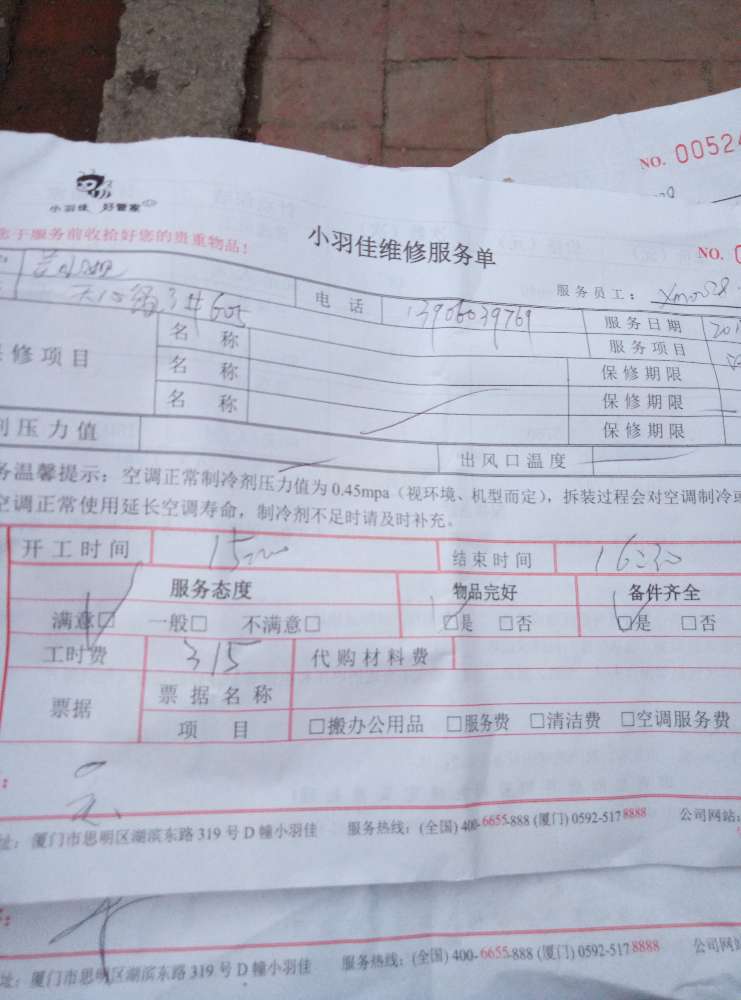 NO. 0052
小羽佳 好管家
于服务前收拾好您的贵重物品！
小羽佳维修服务单
NO. 0
服务员工：
34 605
电话
13906039769
服务日期
201
服务项目
修项目
名称
名称
名称
保修期限
保修期限
保修期限
压力值
出风口温度
务温馨提示：空调正常制冷剂压力值为0.45mpa（视环境、机型而定），拆装过程会对空调制冷或
空调正常使用延长空调寿命，制冷剂不足时请及时补充。
开工时间
15:00
结束时间
16:30
服务态度
物品完好
备件齐全
满意□ 一般□ 不满意□
□是 □否
□是 □否
工时费
315
代购材料费
票据
票据名称
项目
□搬办公用品 □服务费 □清洁费 □空调服务费
址：厦门市思明区湖滨东路319号D幢小羽佳 服务热线：(全国) 400-6655-888 (厦门) 0592-5178888 公司网站：
址：厦门市思明区湖滨东路319号D幢小羽佳 服务热线：(全国) 400-6655-888 (厦门) 0592-5178888 公司网